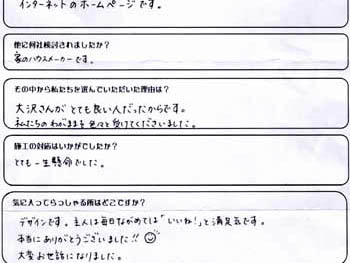 インターネットのホームページです。
他に何社検討されましたか?
家のハウスメーカーです。
その中から私たちを選んでいただいた理由は?
大沢さんがとても良い人だったからです。
私たちのわがままを色々と受けてくださいました。
施工の対応はいかがでしたか?
とても一生懸命でした。
気に入ってらっしゃる所はどこですか?
デザインです。主人は毎日ながめては「いいね!」と満足気です。
本当にありがとうございました!!
大変お世話になりました。